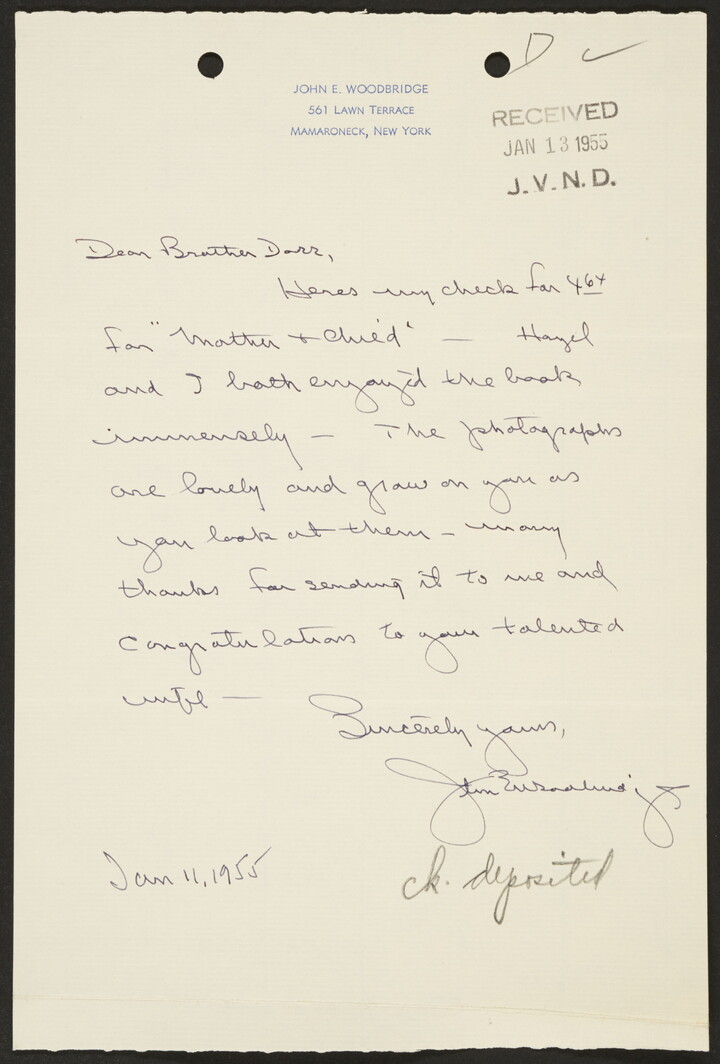 D ✓
JOHN E. WOODBRIDGE
561 LAWN TERRACE
MAMARONECK, NEW YORK
RECEIVED
JAN 13 1955
J.V.N.D.
Dear Brother Dorr,
Heres my check for
for "Mother + Child" — Hazel
and I both enjoyd the book
immensely — The photographs
are lovely and grow on you as
you look at them — many
thanks for sending it to me and
congratulations to your talented
wife —
Sincerely yours,
John E Woodbridge
Jan 11, 1955
ck. deposited